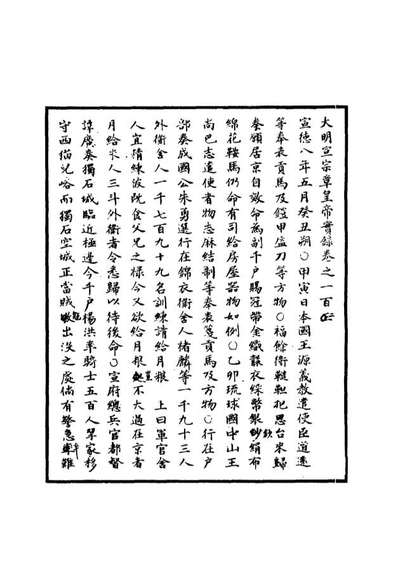 大明宣宗章皇帝實錄卷之一百二
宣德八年五月癸丑朔○甲寅日本國王源義教遣使臣道淵
等奉表貢馬及鎧甲盔刀等方物○福餘衛韃靼把思台來歸
奏願居京自效命為副千戶賜冠帶金織襲衣綵幣銀鈔絹布
綿花鞍馬仍命有司給房屋器物如例○乙卯琉球國中山王
尚巴志遣使者物志麻結制等奉表箋貢馬及方物○行在戶
部奏成國公朱勇選行在錦衣衛舍人緒麟等一千九十三人
外衛舍人一千七百九十九名訓練請給月糧 上曰軍官舍
人宜精練彼既食父兄之祿今又欲給月糧豈不大過在京者
月給米人三斗外衛者令悉歸以待後命○宣府總兵官都督
譚廣奏獨石城臨近極邊今千戶楊洪率騎士五百人挈家移
守西猫兒峪而獨石空城正當賊出沒之處倘有警急卒難